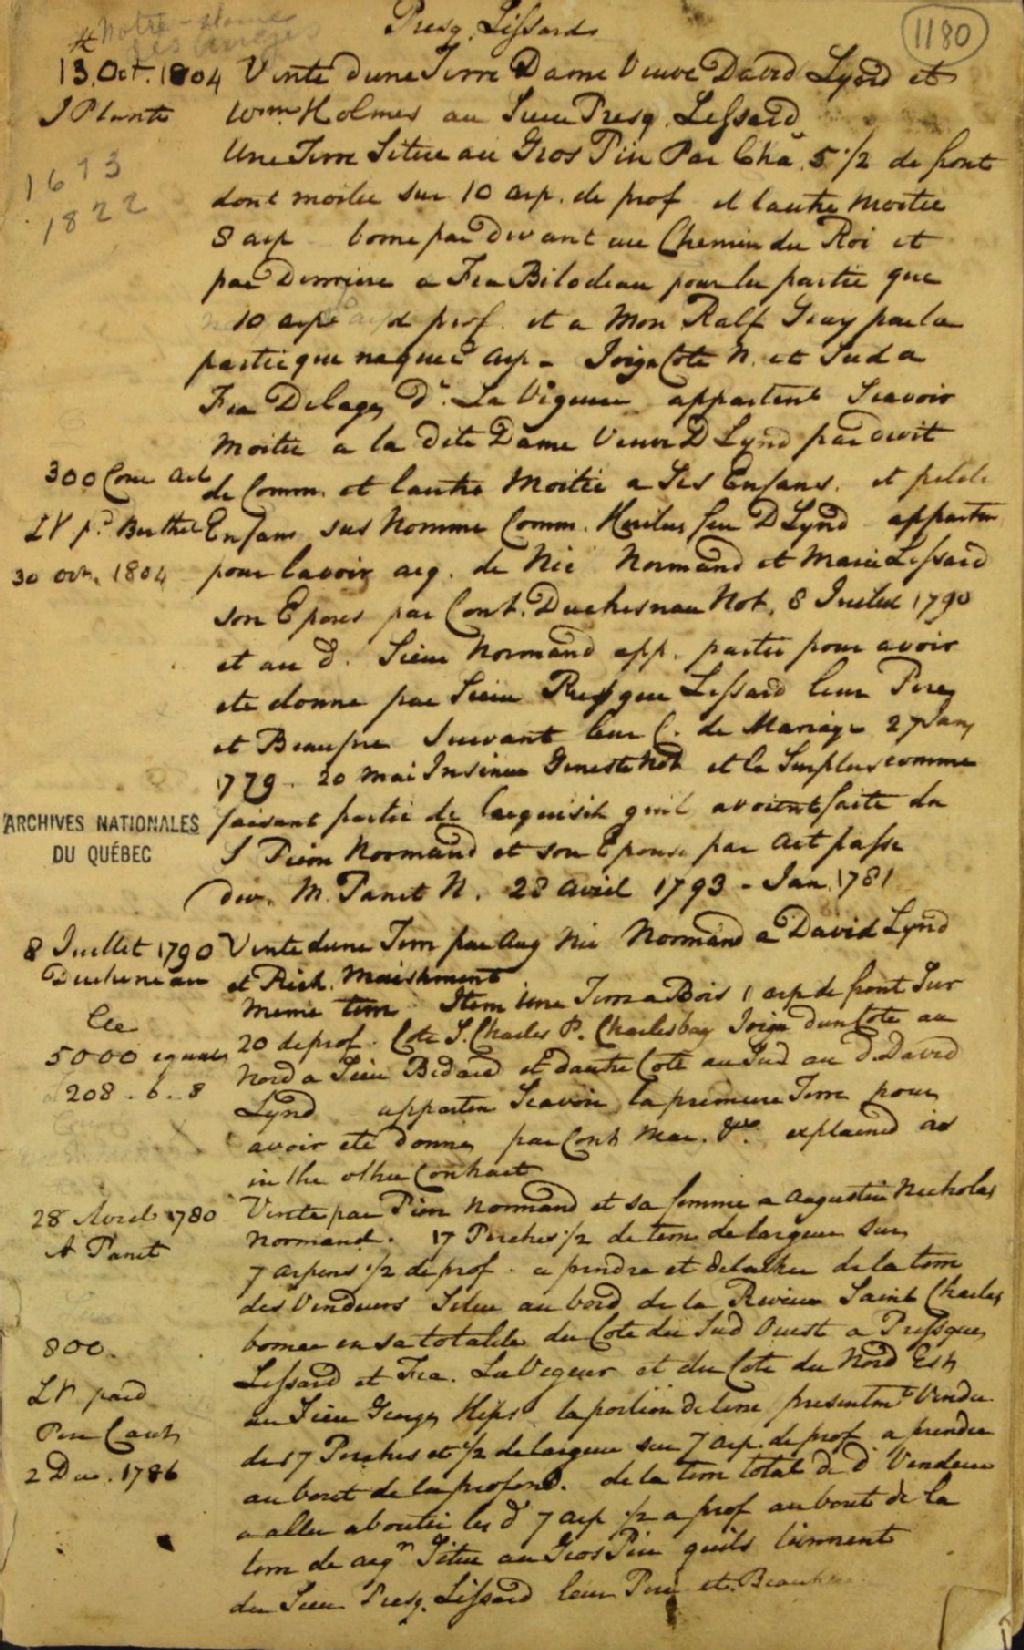 Notre-Dame
des anges
Presq. Lessard
1180
13. Oct. 1804
J Plante
1673
1822
Vente dune Terre Dame Veuve David Lynd et
Wm Holmes au Sieur Presq. Lessard
Une Terre Situe au Gros Pin Par Cha. 5 1/2 de front
dont moitie sur 10 arp. de prof et lautre moitie
8 arp borne par devant au Chemin du Roi et
par Derriere a Fra Bilodeau pour la partie que
10 arp de prof. et a Mon Ralf Gray par la
partie qui na que 8 arp - Joign Cote N. et Sud a
Fra Delage, Dt. La Vigueur appartent Scavoir
moitie a la dite Dame Veuve D Lynd par droit
de Comm. et lautre Moitie a Ses Enfans. et petit
Enfans sus Nomme Comm. Heritiers feu D Lynd apparten
pour lavoir acq. de Nic Normand et Marie Lessard
son Epouse par Cont. Duchesneau Not. 8 Juillet 1790
et au d. Sieur Normand app. partie pour avoir
ete donne par Sieur Presque Lessard leur Pere
et Beaupere Suivant leur C. de Mariage 27 Jan
1779. 20 Mai Insinue Geneste Not et le Surplus comme
faisant partie de lacquisit quil avoient faite du
S Pierre Normand et son Epouse par Act passe
dev. M. Panet N. 28 Avril 1793 - Jan. 1781
300 Cour act
LV pd. Berthel
30 Oct. 1804
ARCHIVES NATIONALES
DU QUÉBEC
8 Juillet 1790
Ducheneau
5000 equal
208 - 6 - 8
Vente dune Terre par Aug Nic Normand a David Lynd
et Rich. Maishment
meme terre Item Une Terre a Bois 1 arp de front Sur
20 de prof. Cote S. Charles P. Charlesbag Joign dun Cote au
Nord a Sieur Bedard et dautre Cote au Sud au d. David
Lynd apparten Scavoir la premiere Terre pour
avoir ete donne par Cont Mar. &c. explained as
in the other Contract
28 Avril 1780
A Panet
800.
LV paid
Par Caut
2 Dec. 1786
Vente par Pierre Normand et sa femme a Augustin Nicholas
Normand. 17 Perches 1/2 de terre de largeur sur
7 arpens 1/2 de prof. a prendre et detacher de la terre
des Vendeurs Situe au bord de la Riviere Saint Charles
bornee en sa totalite du Cote du Sud Ouest a Presque
Lessard et Fra. LaVegeur et du Cote du Nord Est
au Sieur George Hips la portion de terre presentmt Vendu
de 17 Perches et 1/2 de largeur sur 7 arp. de prof a prendre
au bout de la profond. de la terre total de d Vendeur
a aller aboutir les d 7 arp 1/2 a prof au bout de la
terre de acqr Situe au Gros Pin quils tiennent
du Sieur Presq. Lessard leur Pere et Beau